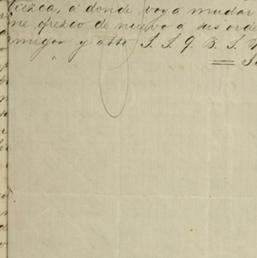 riezca, á donde voy á mudar
me ofrezco de nuevo á sus orde
amigo y atto S. S. Q. B. S. M